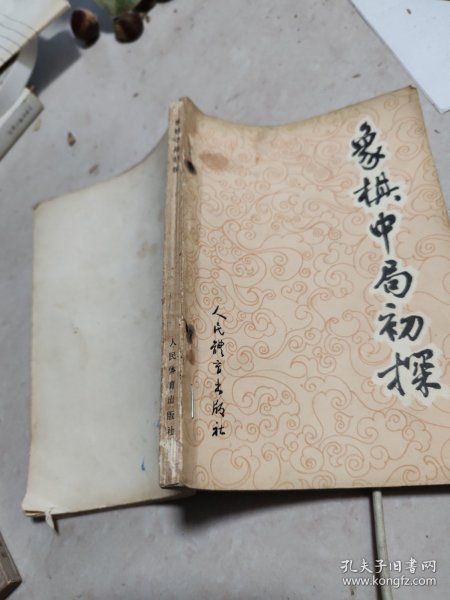 象棋中局初探
人民體育出版社
人民体育出版社
孔夫子旧书网
www.kongfz.com